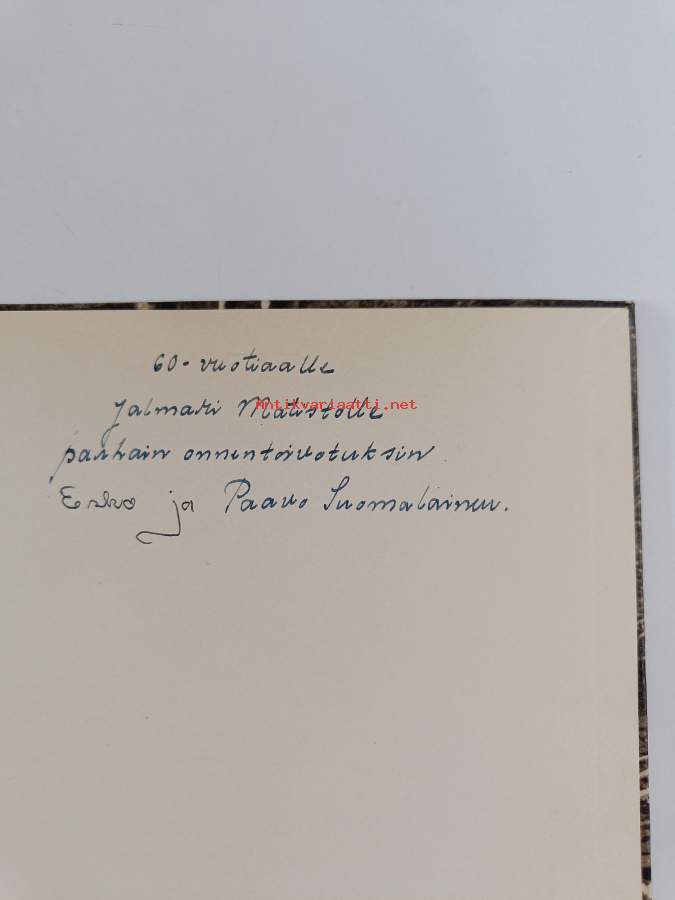 60-vuotiaalle
Jalmari
antikvariaatti.net
parhain onnentoivotuksin
Esko ja Paavo Suomalainen.